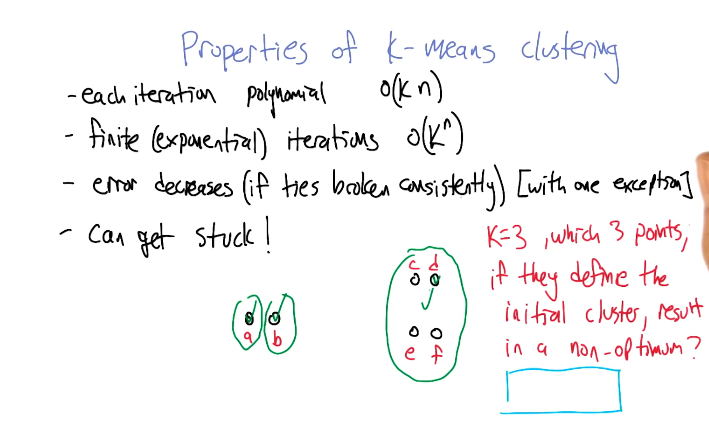 Properties of k-means clustering
- each iteration polynomial O(kn)
- finite (exponential) iterations O(k^n)
- error decreases (if ties broken consistently) [with one exception]
- can get stuck!
K=3, which 3 points,
if they define the
initial cluster, result
in a non-optimum?
c d
a b
e f